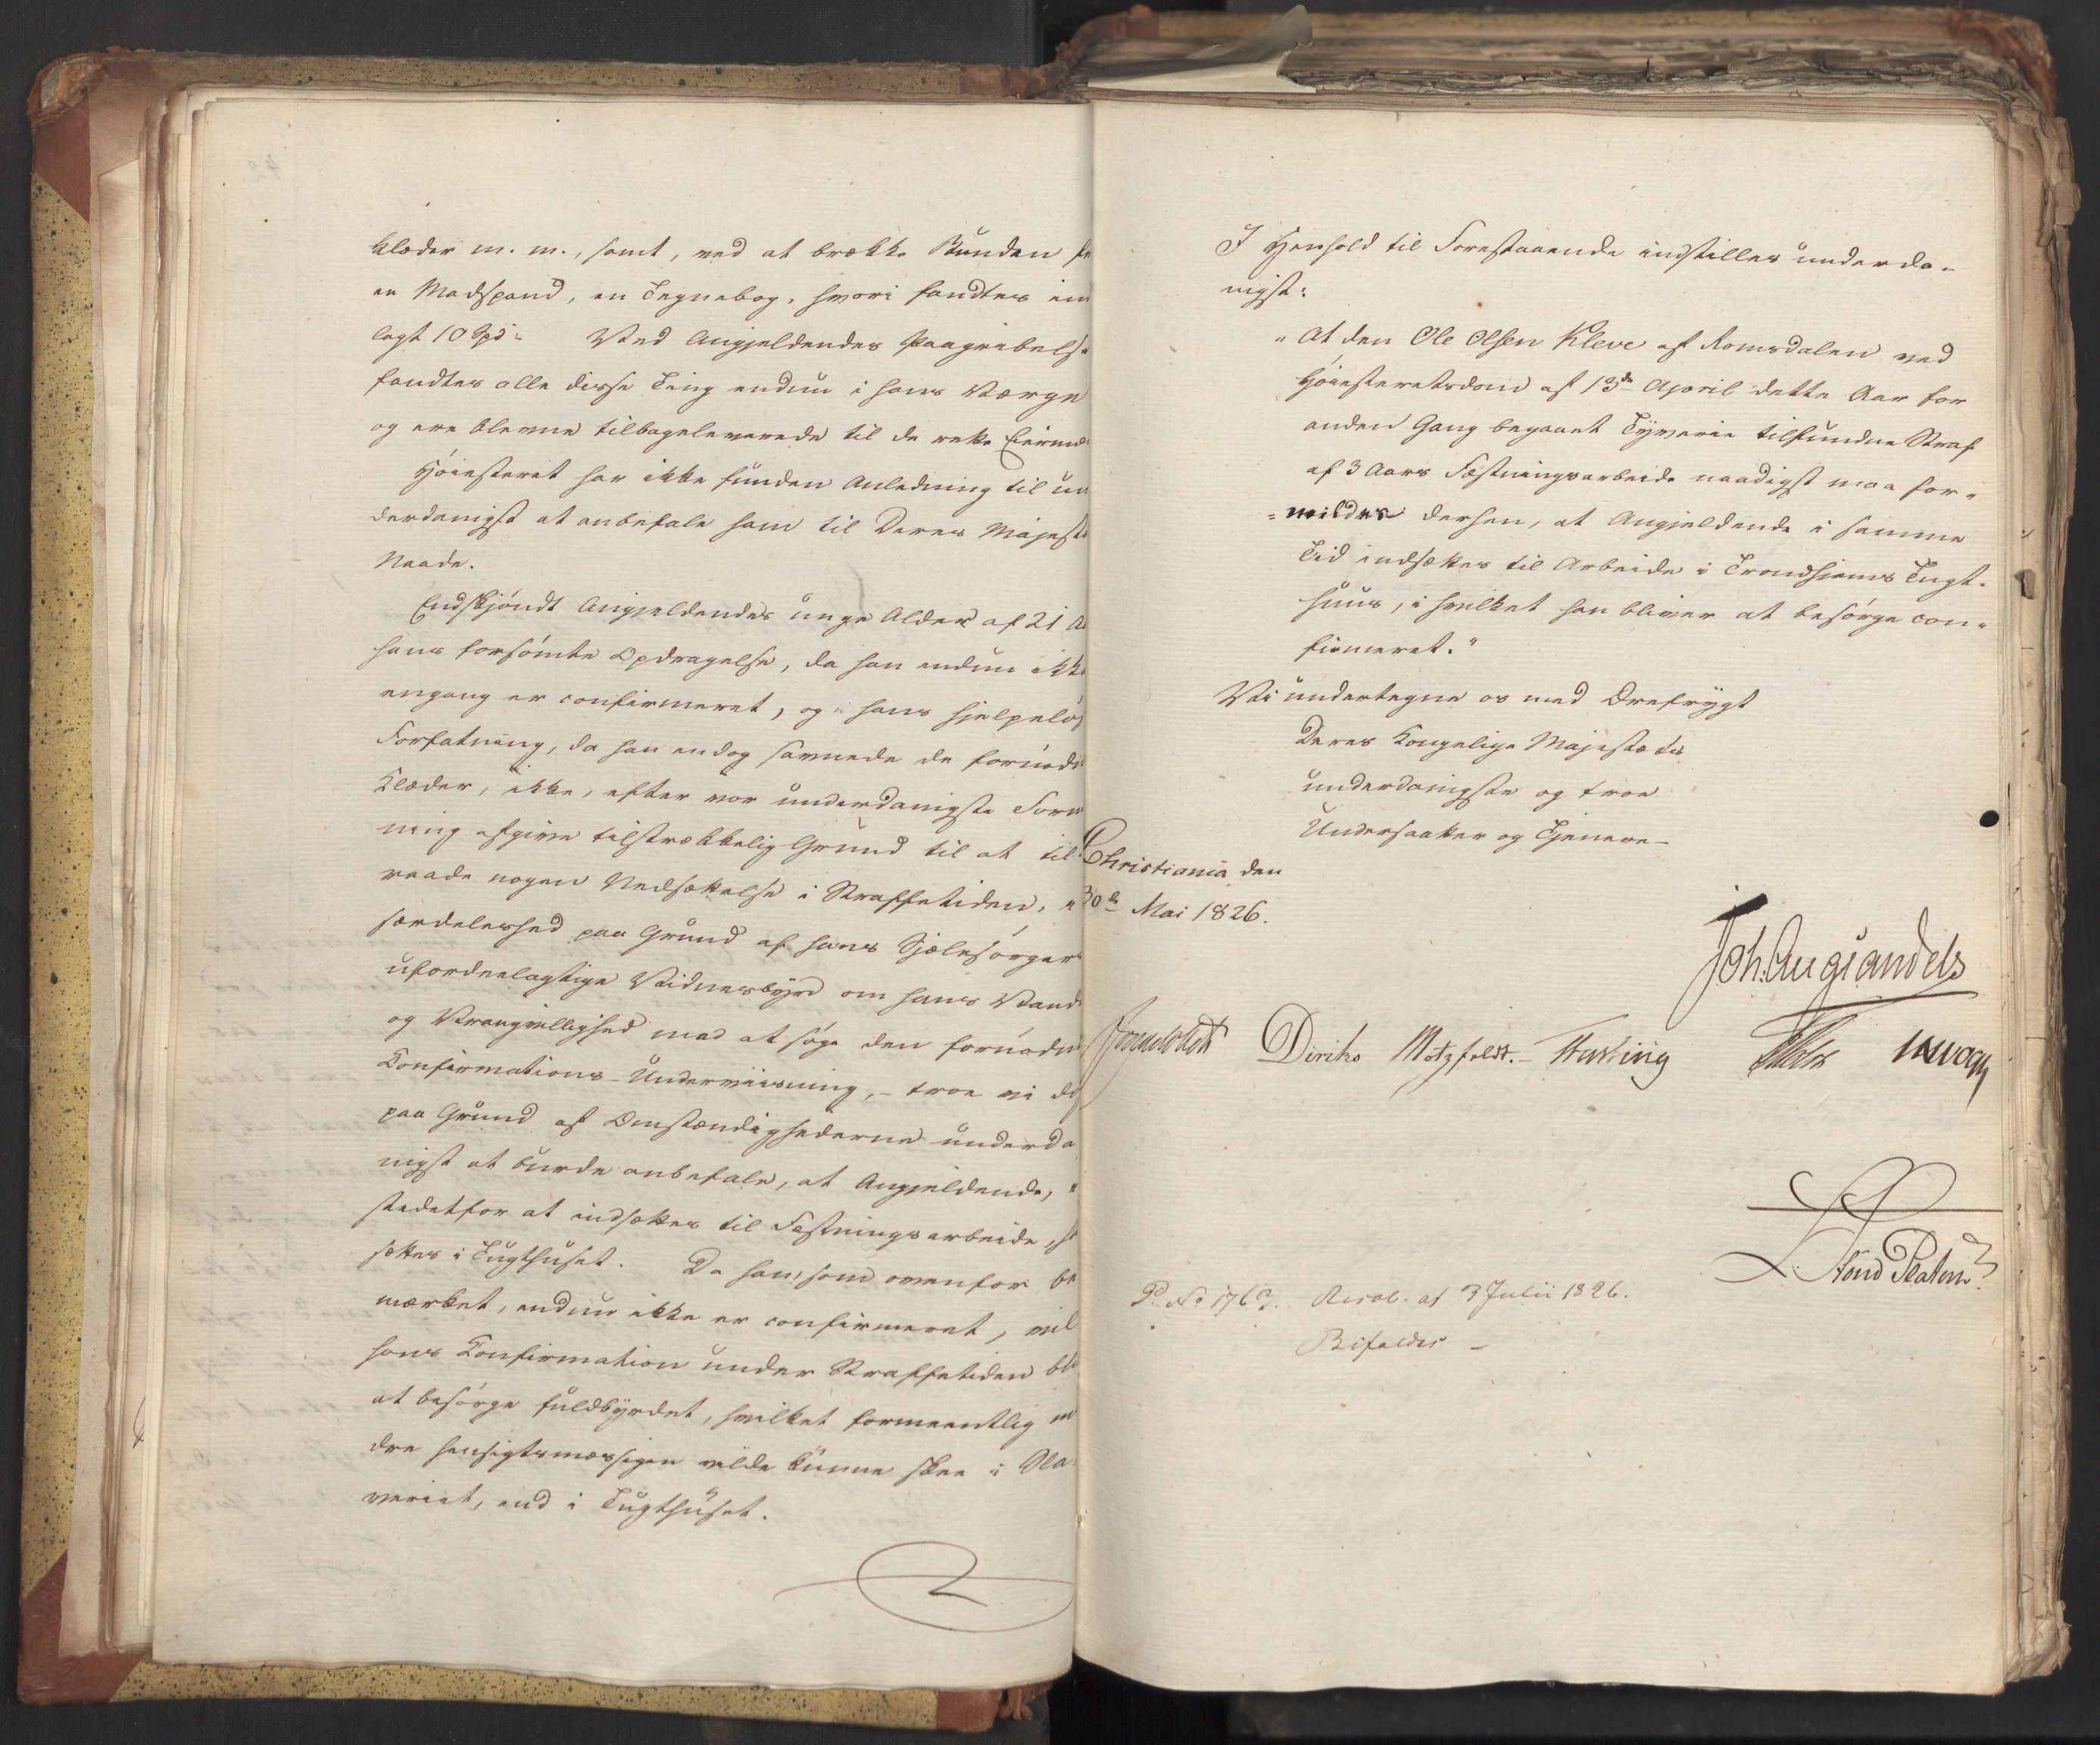 Klæder m. m., samt, ved at brække Bunden fr
en Madspand, en Tegnebog, hvori fandtes in
lagt 10 Spd. Ved Angjeldendes Paagribels
fandtes alle disse Ting endnu i hans Værge
og ere blevne tilbageleverede til de rette Eierm
Høiesteret har ikke funden Anledning til un
derdanigst at anbefale ham til Deres Majest
Naade.
Endskjøndt Angjeldendes unge Alder af 21 A
hans forsømte Opdragelse, da han endnu ikke
engang er confirmeret, og hans hjelpeløs
Forfatning, da han endog savnede de fornødn
Klæder, ikke, efter vor underdanigste Form
ning afgive tilstrækkelig Grund til at til
raade nogen Nedsættelse i Straffetiden, i
særdeleshed paa Grund af hans Sjælesørgers
ufordeelagtige Vidnesbyrd om hans Vand
og Vrangvillighed med at søge den fornødn
Confirmations-Underviisning, - troe vi do
paa Grund af Omstændighederne underda
nigst at burde anbefale, at Angjeldende, i
stedetfor at indsættes til Fæstningsarbeide, h
sættes i Tugthuset. Da han, som ovenfor be
mærket, endnu ikke er confirmeret, vil
hans Confirmation under Straffetiden bli
at besørge fuldbyrdet, hvilket formeentlig m
dre hensigtsmæssigen vilde kunne skee i Sla
veriet, end i Tugthuset.
I Henhold til Forestaaende indstilles underda-
nigst:
"At den Ole Olsen Kleve af Romsdalen ved
Høiesteretsdom af 13de April dette Aar for
anden Gang begaaet Tyverie tilfundne Straf
af 3 Aars Fæstningsarbeide naadigst maa for-
mildes derhen, at Angjeldende i samme
Tid indsættes til Arbeide i Trondhjems Tugt-
huus, i hvilket han bliver at besørge con-
firmeret."
Vi undertegne os med Ærefrygt
Deres Kongelige Majestæts
underdanigste og troe
Undersaatter og Tjenere
Christiania den
30de Mai 1826.
Joh. Aug. Sandels
Sommerhielm Diriks Motzfeldt. Fasting Holst
L. Stoud Platou
P. No 1769. Resol. af 3 Julii 1826.
Bifaldes